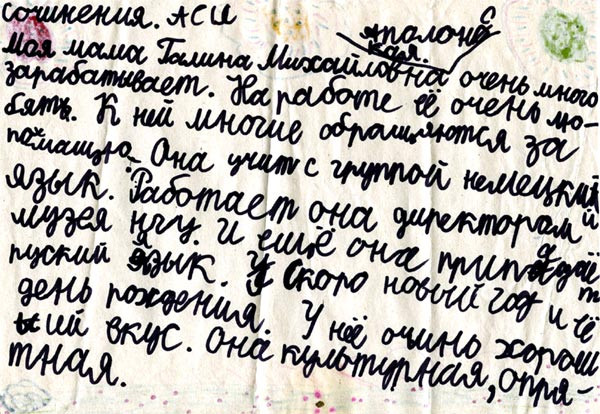 сочинения. АСИ
Аполонс
кая.
Моя мама Галина Михайловна очень много
зарабатывает. На работе её очень лю-
бять. К ней многие обращяются за
помащью. Она учит с группой немецкий
язык. Работает она директорам
музея нгу. И ещё она припадаёт
руский язык. У скоро новый год и её
день рождения. У неё очинь хорош
ий вкус. Она культурная, опря-
тная.